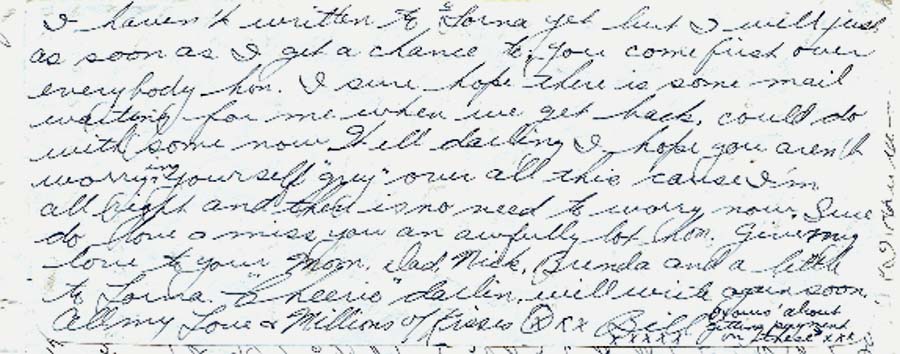 I haven't written to Lorna yet but I will just
as soon as I get a chance to, you come first over
everybody hon. I sure hope there is some mail
waiting for me when we get back, could do
with some now. Well darling I hope you aren't
worrying yourself "grey" over all this 'cause I'm
all right and there is no need to worry now. Sure
do love & miss you an awfully lot hon. Give my
love to your Mom, Dad, Nick, Brenda and a little
to Lorna. "Cheerio" darlin, will write again soon.
All my Love & Millions of Kisses (X) xx Bill
xxxxx
about
getting payment
on these xxx